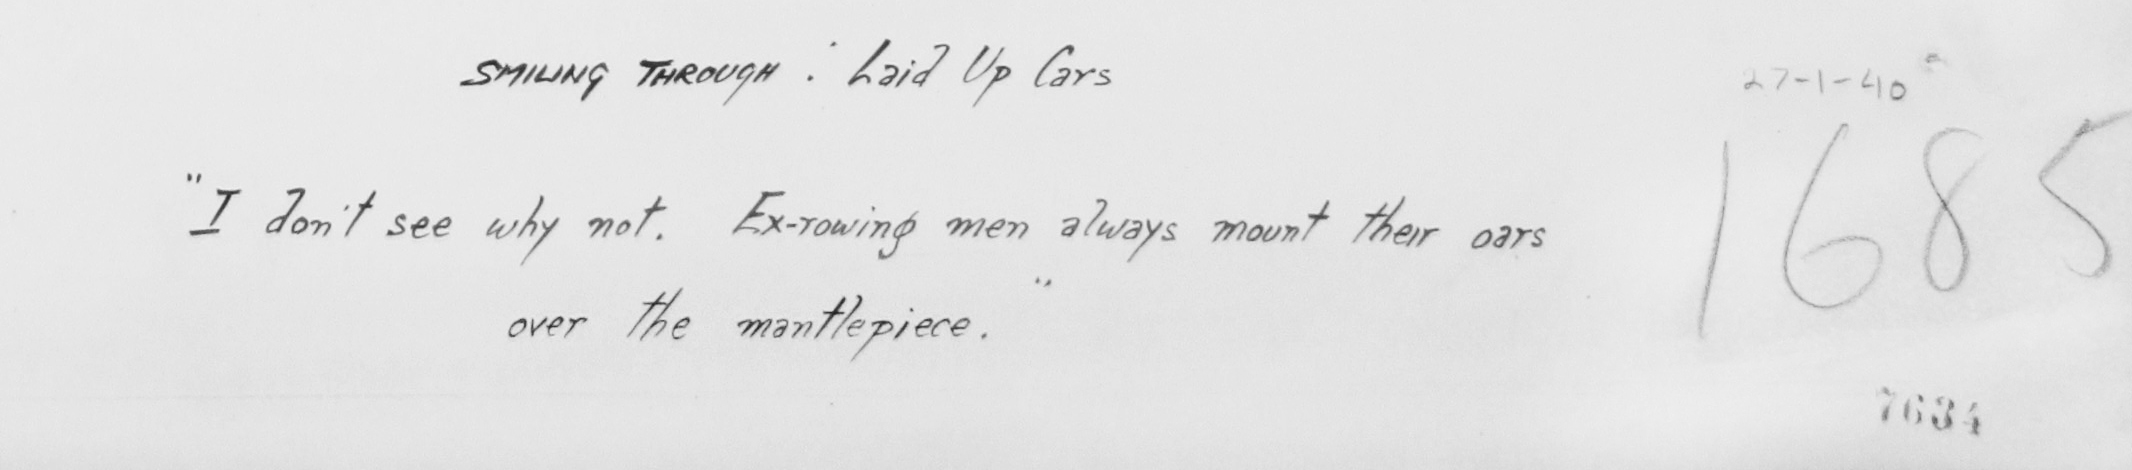 SMILING THROUGH : Laid Up Cars
27-1-40
1685
"I don't see why not. Ex-rowing men always mount their oars
over the mantlepiece."
7634